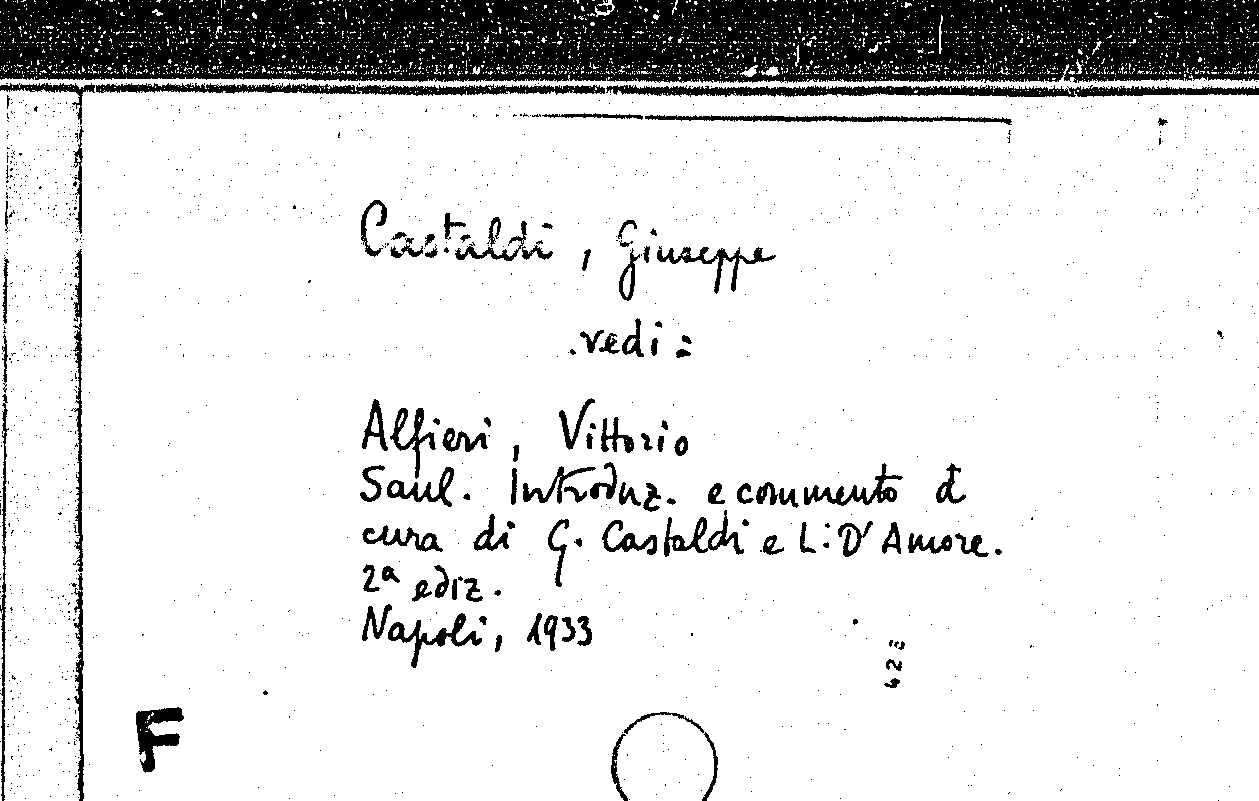 Castaldi, Giuseppe
vedi:
Alfieri, Vittorio
Saul. Introduz. e commento a
cura di G. Castaldi e L. D'Amore.
2ª ediz.
Napoli, 1933
F